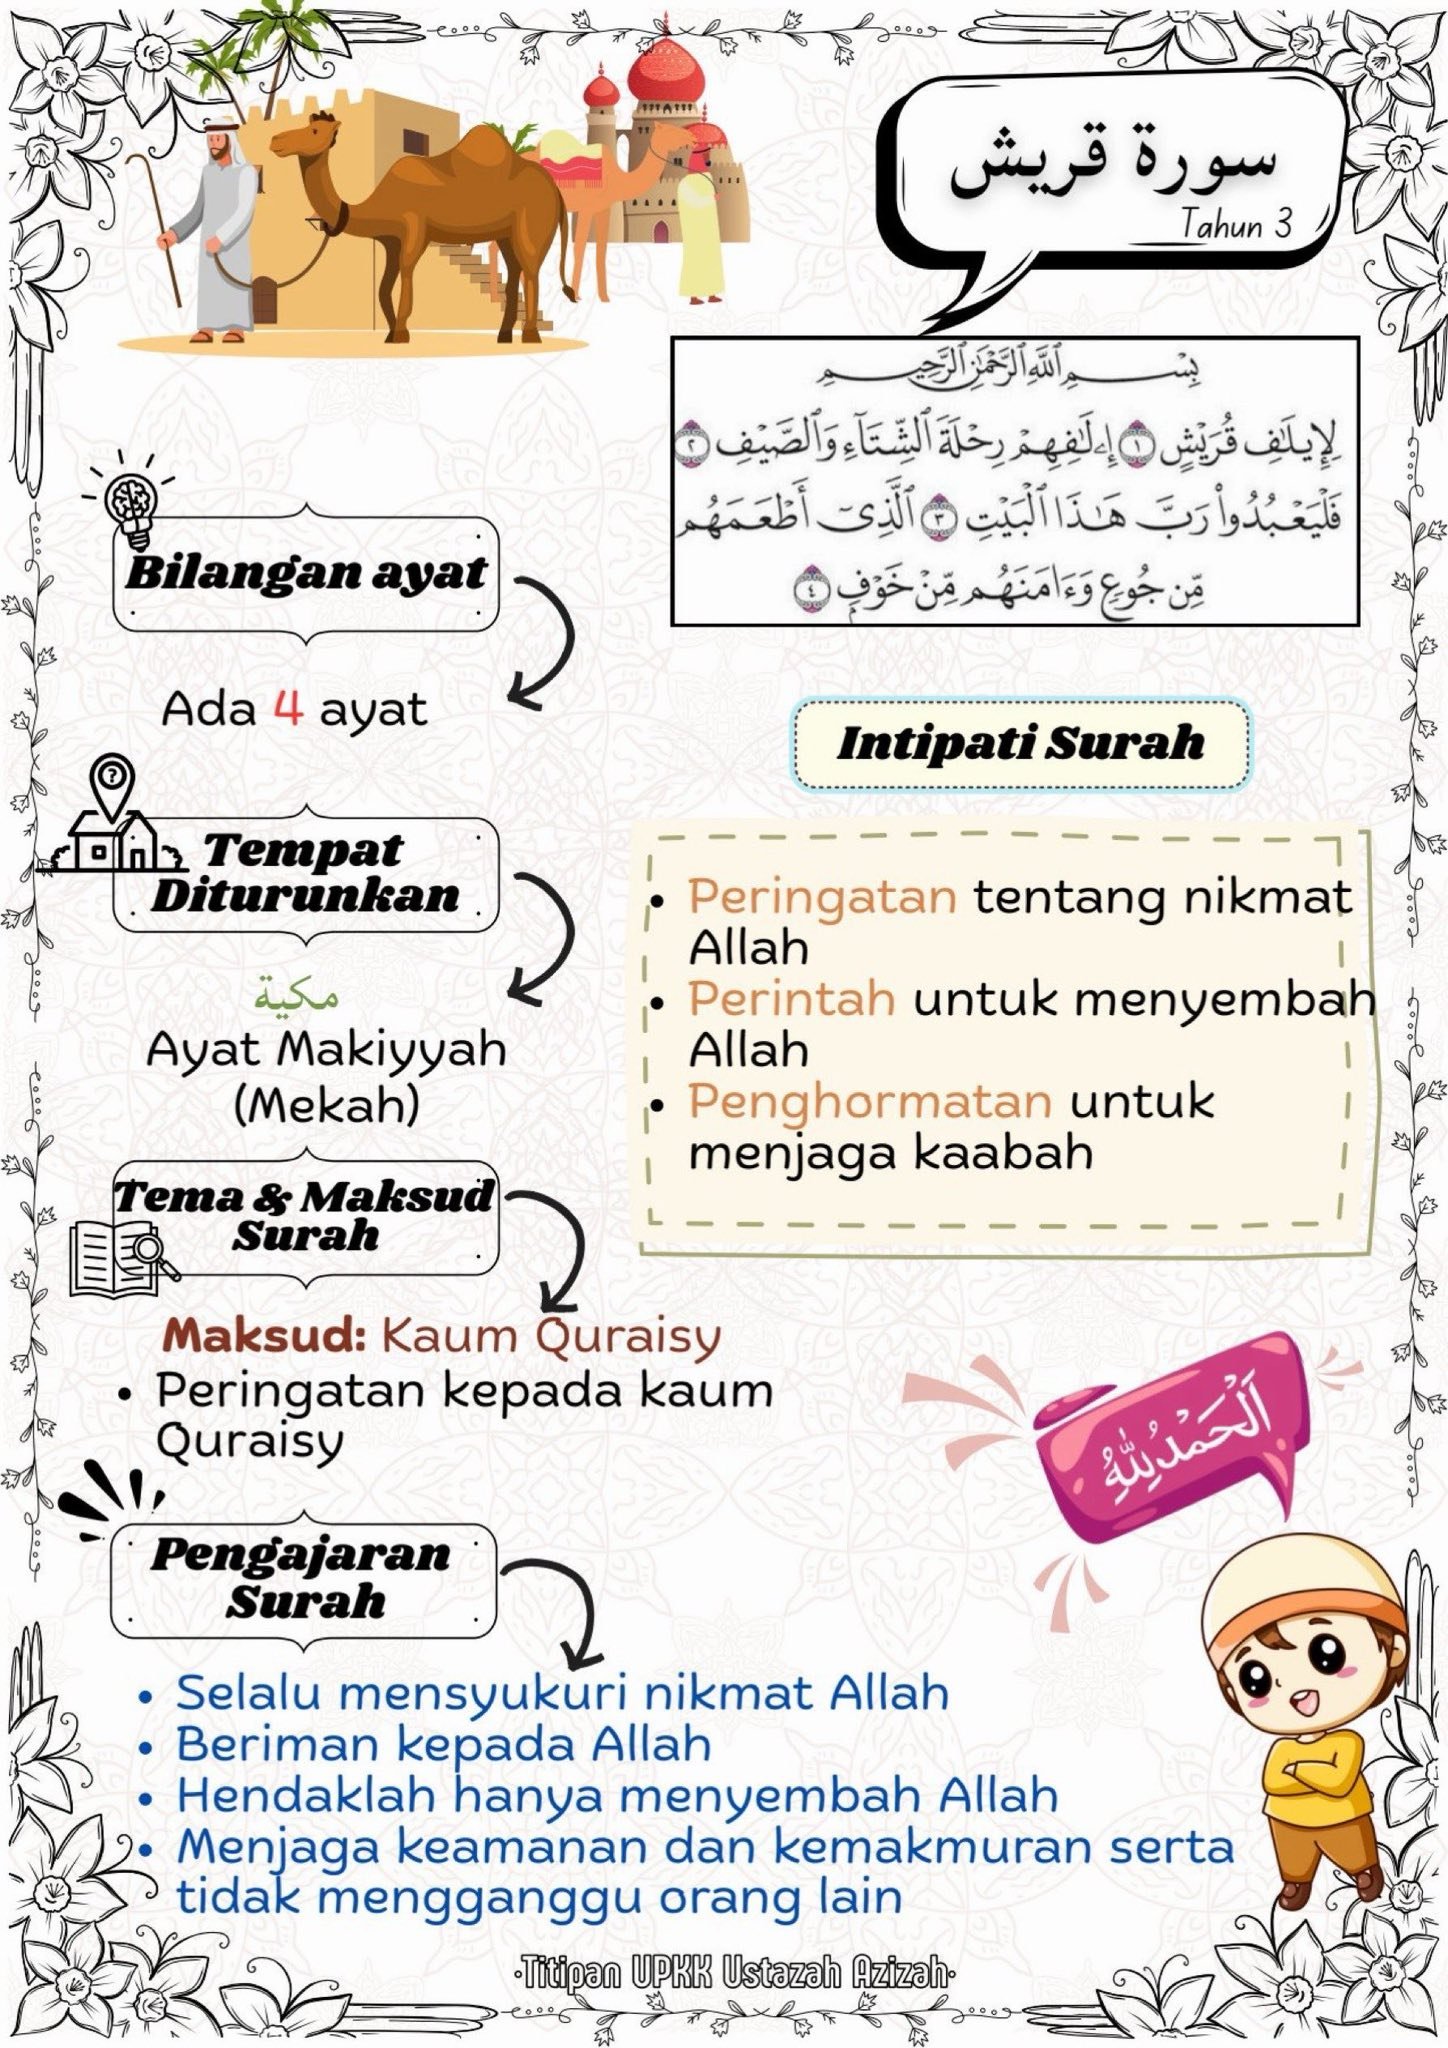 سورة قريش
Tahun 3
بِسْمِ ٱللَّهِ ٱلرَّحْمَٰنِ ٱلرَّحِيمِ
لِإِيلَٰفِ قُرَيْشٍ ١ إِۦلَٰفِهِمْ رِحْلَةَ ٱلشِّتَآءِ وَٱلصَّيْفِ ٢
فَلْيَعْبُدُوا۟ رَبَّ هَٰذَا ٱلْبَيْتِ ٣ ٱلَّذِىٓ أَطْعَمَهُم
مِّن جُوعٍ وَءَامَنَهُم مِّنْ خَوْفٍۭ ٤
Bilangan ayat
Ada 4 ayat
Tempat
Diturunkan
مكية
Ayat Makiyyah
(Mekah)
Tema & Maksud
Surah
Maksud: Kaum Quraisy
• Peringatan kepada kaum
Quraisy
Intipati Surah
• Peringatan tentang nikmat
Allah
• Perintah untuk menyembah
Allah
• Penghormatan untuk
menjaga kaabah
اَلْحَمْدُ لِلّٰهِ
Pengajaran
Surah
• Selalu mensyukuri nikmat Allah
• Beriman kepada Allah
• Hendaklah hanya menyembah Allah
• Menjaga keamanan dan kemakmuran serta
tidak mengganggu orang lain
•Titipan UPKK Ustazah Azizah•